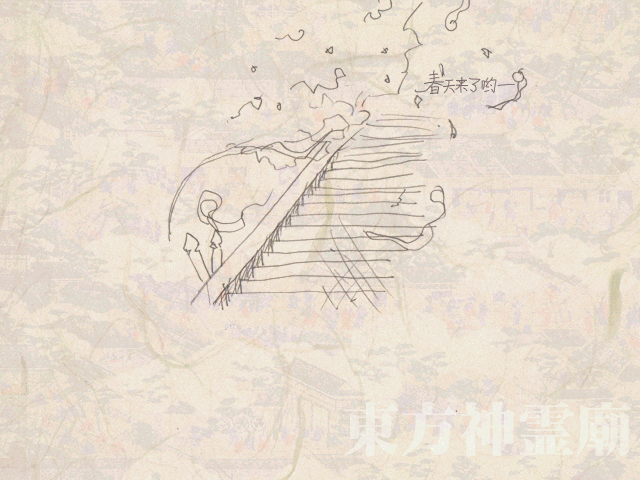 春天来了哟一
東方神霊廟